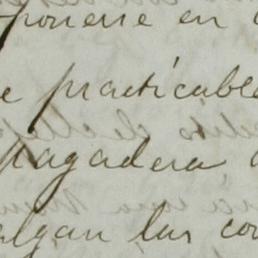 ponerse en
e practicable
pagadera
algan las co